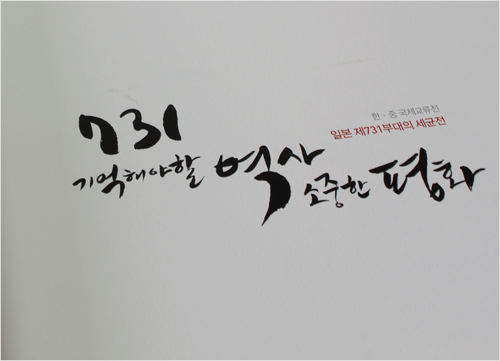 한 · 중 국제교류전
일본 제731부대의 세균전
731
기억해야할 역사
소중한 평화